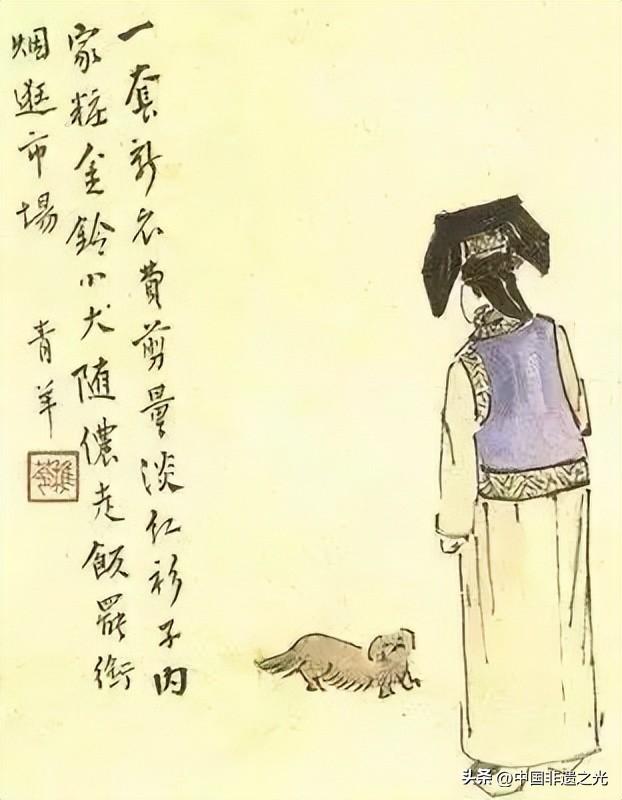 一套新衣費剪量淡红衫子內
家粧金鈴小犬随儂走飯罷銜
烟逛市場
青羊
头条 @中国非遗之光